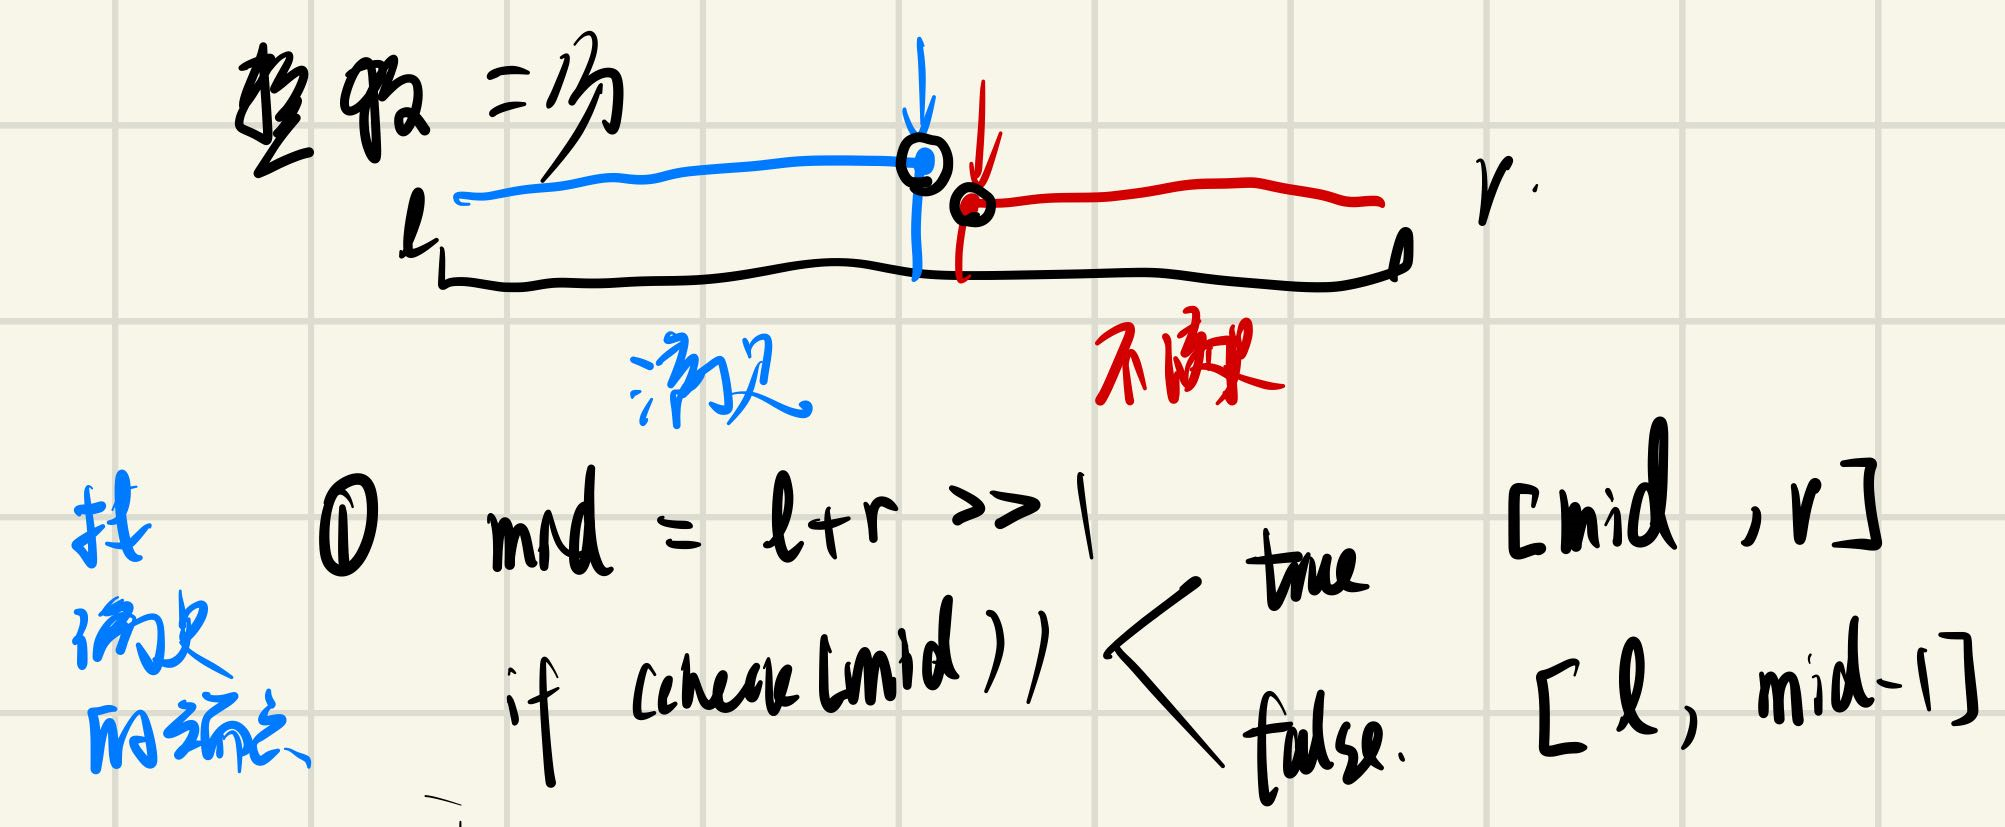 整数二分
l r.
满足 不满足
找
满足
的端点
① mid = l+r >> 1
if (check(mid))
true [mid, r]
false. [l, mid-1]